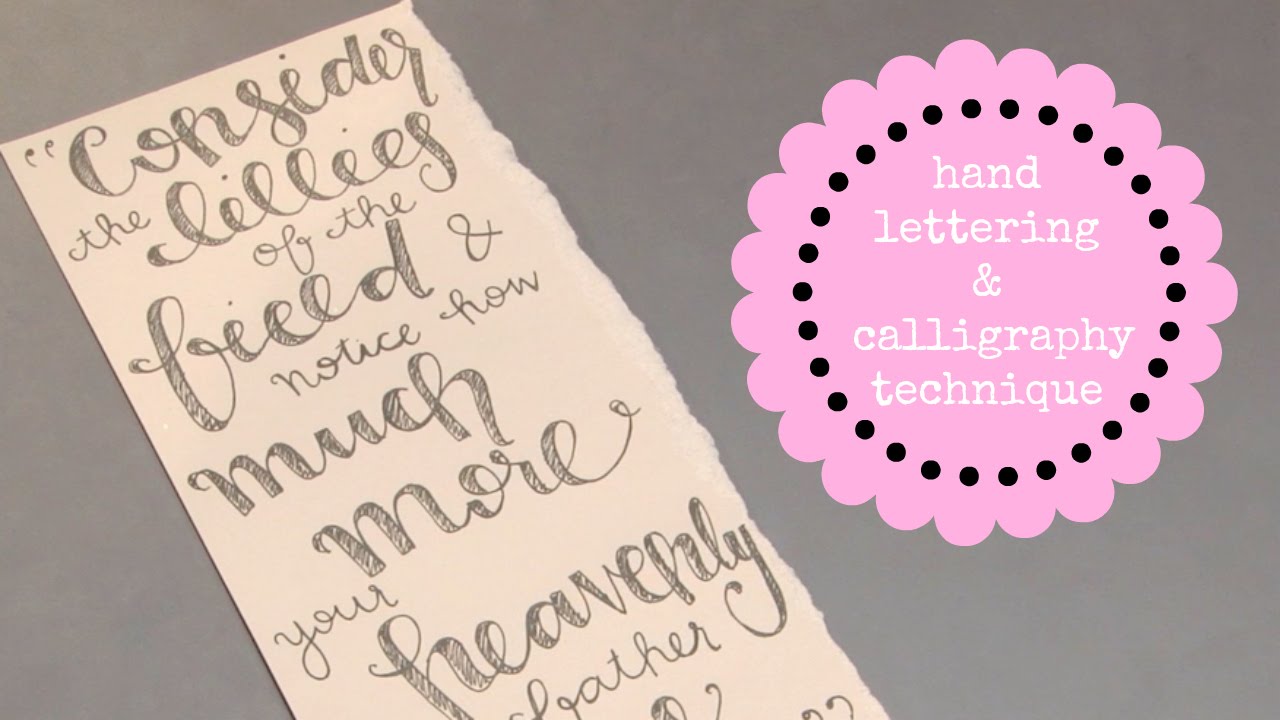 “Consider
the lillies
of the
field &
notice how
much
more
your
heavenly
father
hand
lettering
&
calligraphy
technique